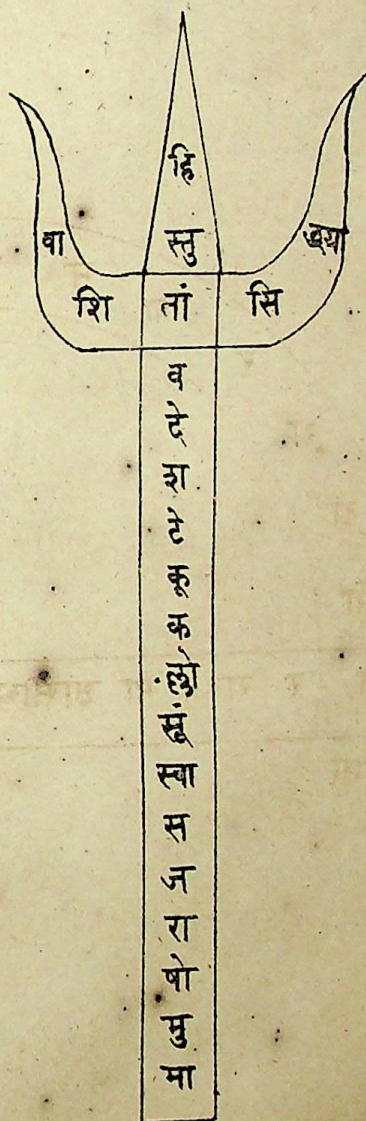 हि
वा स्तु ध्या
शि तां सि
व
दे
श
टे
कू
क
सू
स्वा
स
ज
रा
षो
मु
मा